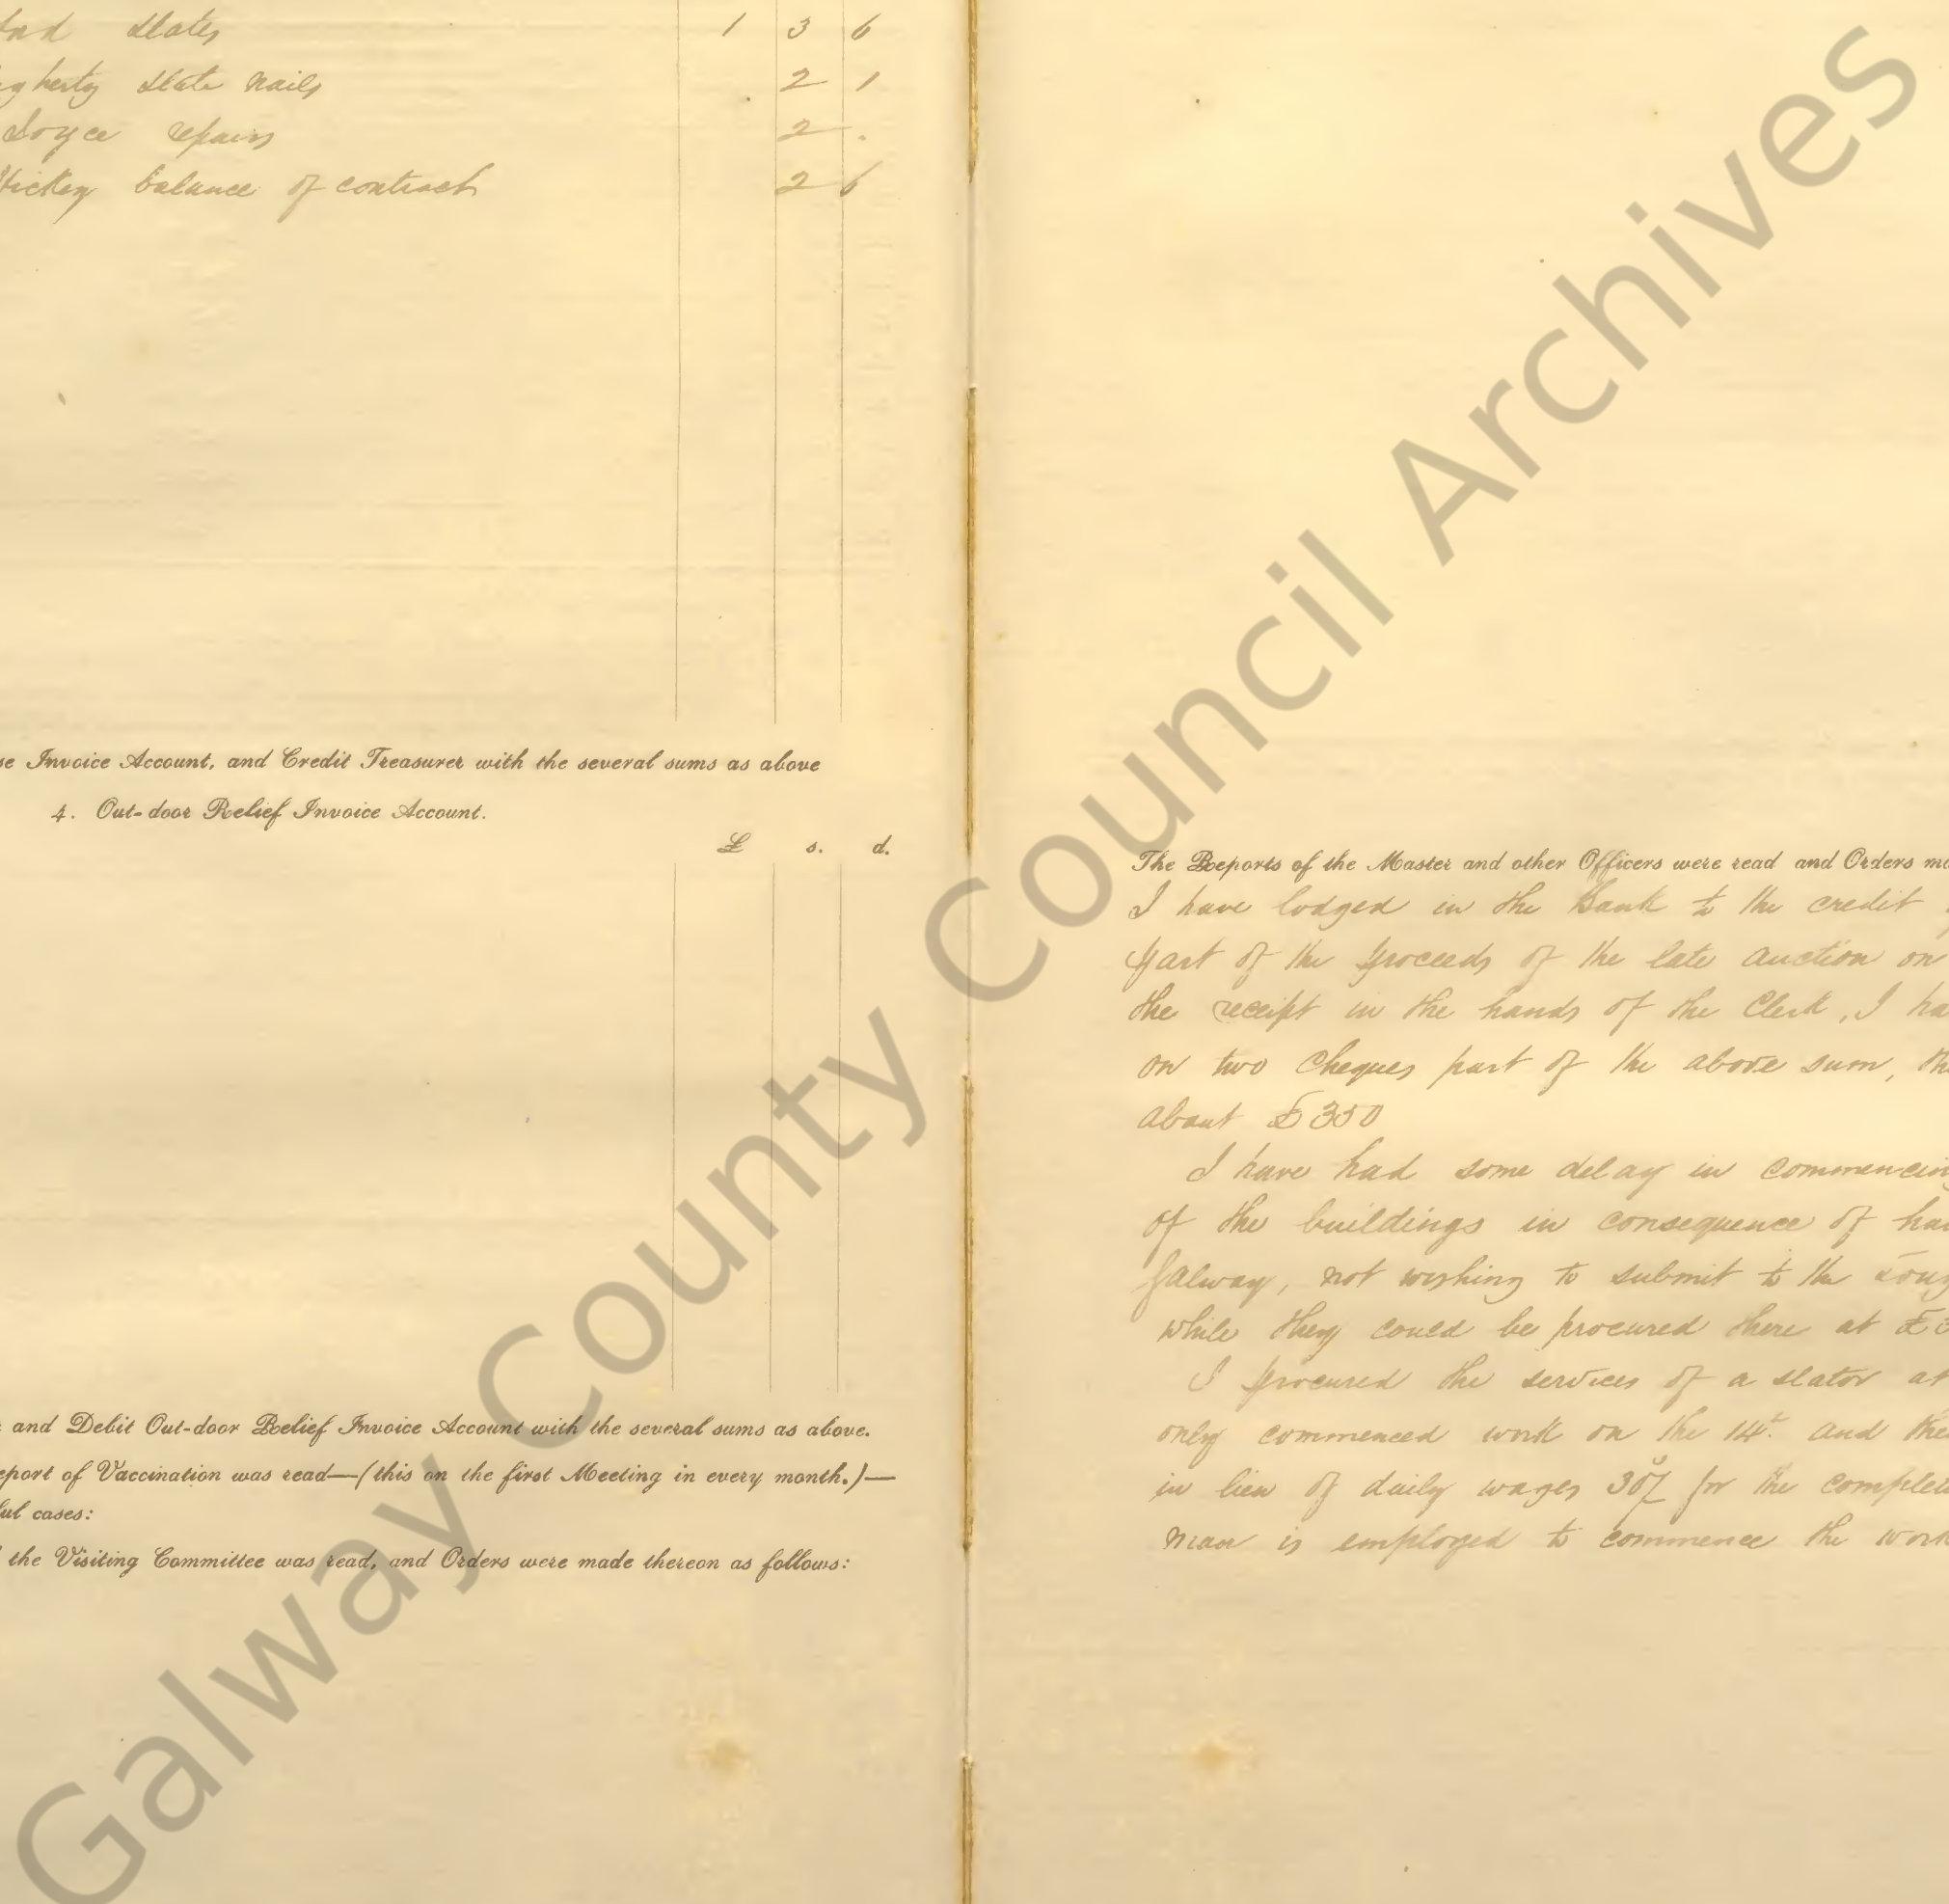 and slates 1 3 6
gherty slate nails 2 1
Joyce repairs 2 .
Hickey balance of contract 2 6
se Invoice Account, and Credit Treasurer with the several sums as above
4. Out-door Relief Invoice Account.
£ s. d.
and Debit Out-door Relief Invoice Account with the several sums as above.
eport of Vaccination was read—(this on the first Meeting in every month.)—
ful cases:
the Visiting Committee was read, and Orders were made thereon as follows:
The Reports of the Master and other Officers were read and Orders ma
I have lodged in the Bank to the credit
part of the proceeds of the late auction on
the receipt in the hands of the Clerk, I ha
on two cheques part of the above sum, the
about £350
I have had some delay in commencing
of the buildings in consequence of hav
Galway, not wishing to submit to the
while they could be procured there at £3
I procured the services of a slator at
only commenced work on the 14th and
in lieu of daily wages 30/ for the complet
man is employed to commence the work
Galway County Council Archives